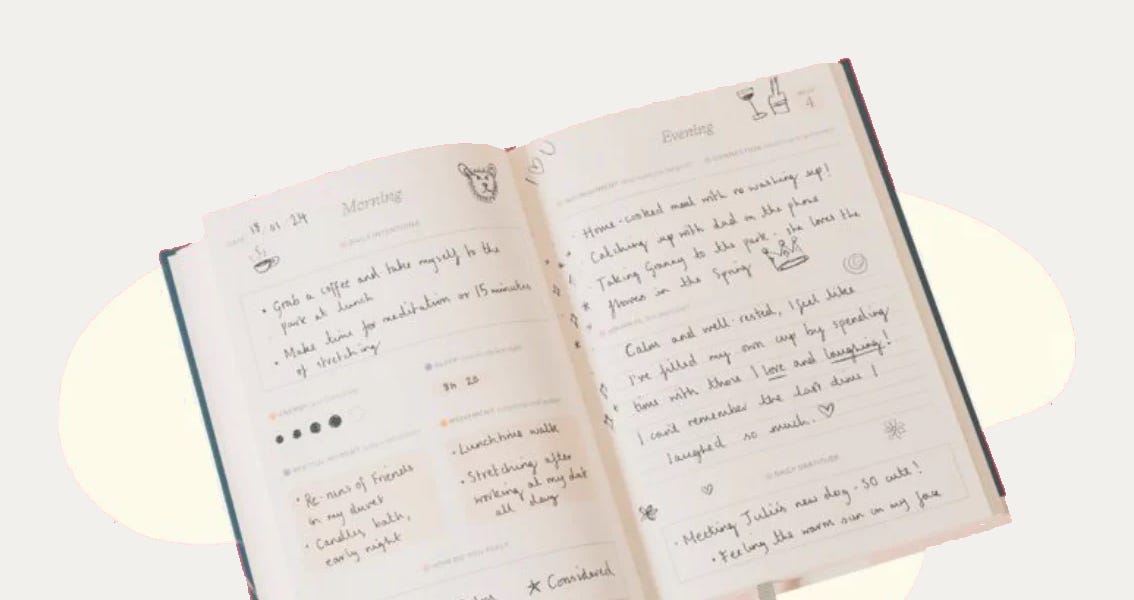 Morning
DATE 18 01 24
DAILY INTENTIONS
• Grab a coffee and take myself to the
park at lunch
• Make time for meditation or 15 minutes
of stretching
ENERGY
SLEEP
8h 20
RESTFUL MOMENT
• Re-runs of Friends
in my duvet
• Candles, bath,
early night
MOVEMENT
• Lunchtime walk
• Stretching after
working at my desk
all day
HOW DID YOU FEEL?
★ Considered
I ♡ U
Evening
4
NOURISHMENT
CONNECTION
• Home-cooked meal with no washing up!
• Catching up with dad on the phone
• Taking Granny to the park - she loves the
flowers in the Spring
Calm and well-rested, I feel like
I've filled my own cup by spending
time with those I love and laughing!
I can't remember the last time I
laughed so much. ♡
DAILY GRATITUDE
• Meeting Julia's new dog - SO cute!
• Feeling the warm sun on my face